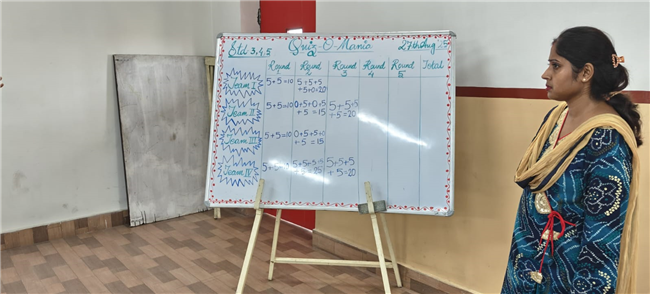 Std 3,4,5 Quiz-O-Mania 27th Aug 25
Round 1 Round 2 Round 3 Round 4 Round 5 Total
Team I 5+5=10 5+5+5
+5+0=20
Team II 5+5=10 0+5+0+5 5+5+5
+5=15 +5=20
Team III 5+5=10 0+5+5+0
+5=15
Team IV 5+5+5 5+5+5
+5=20